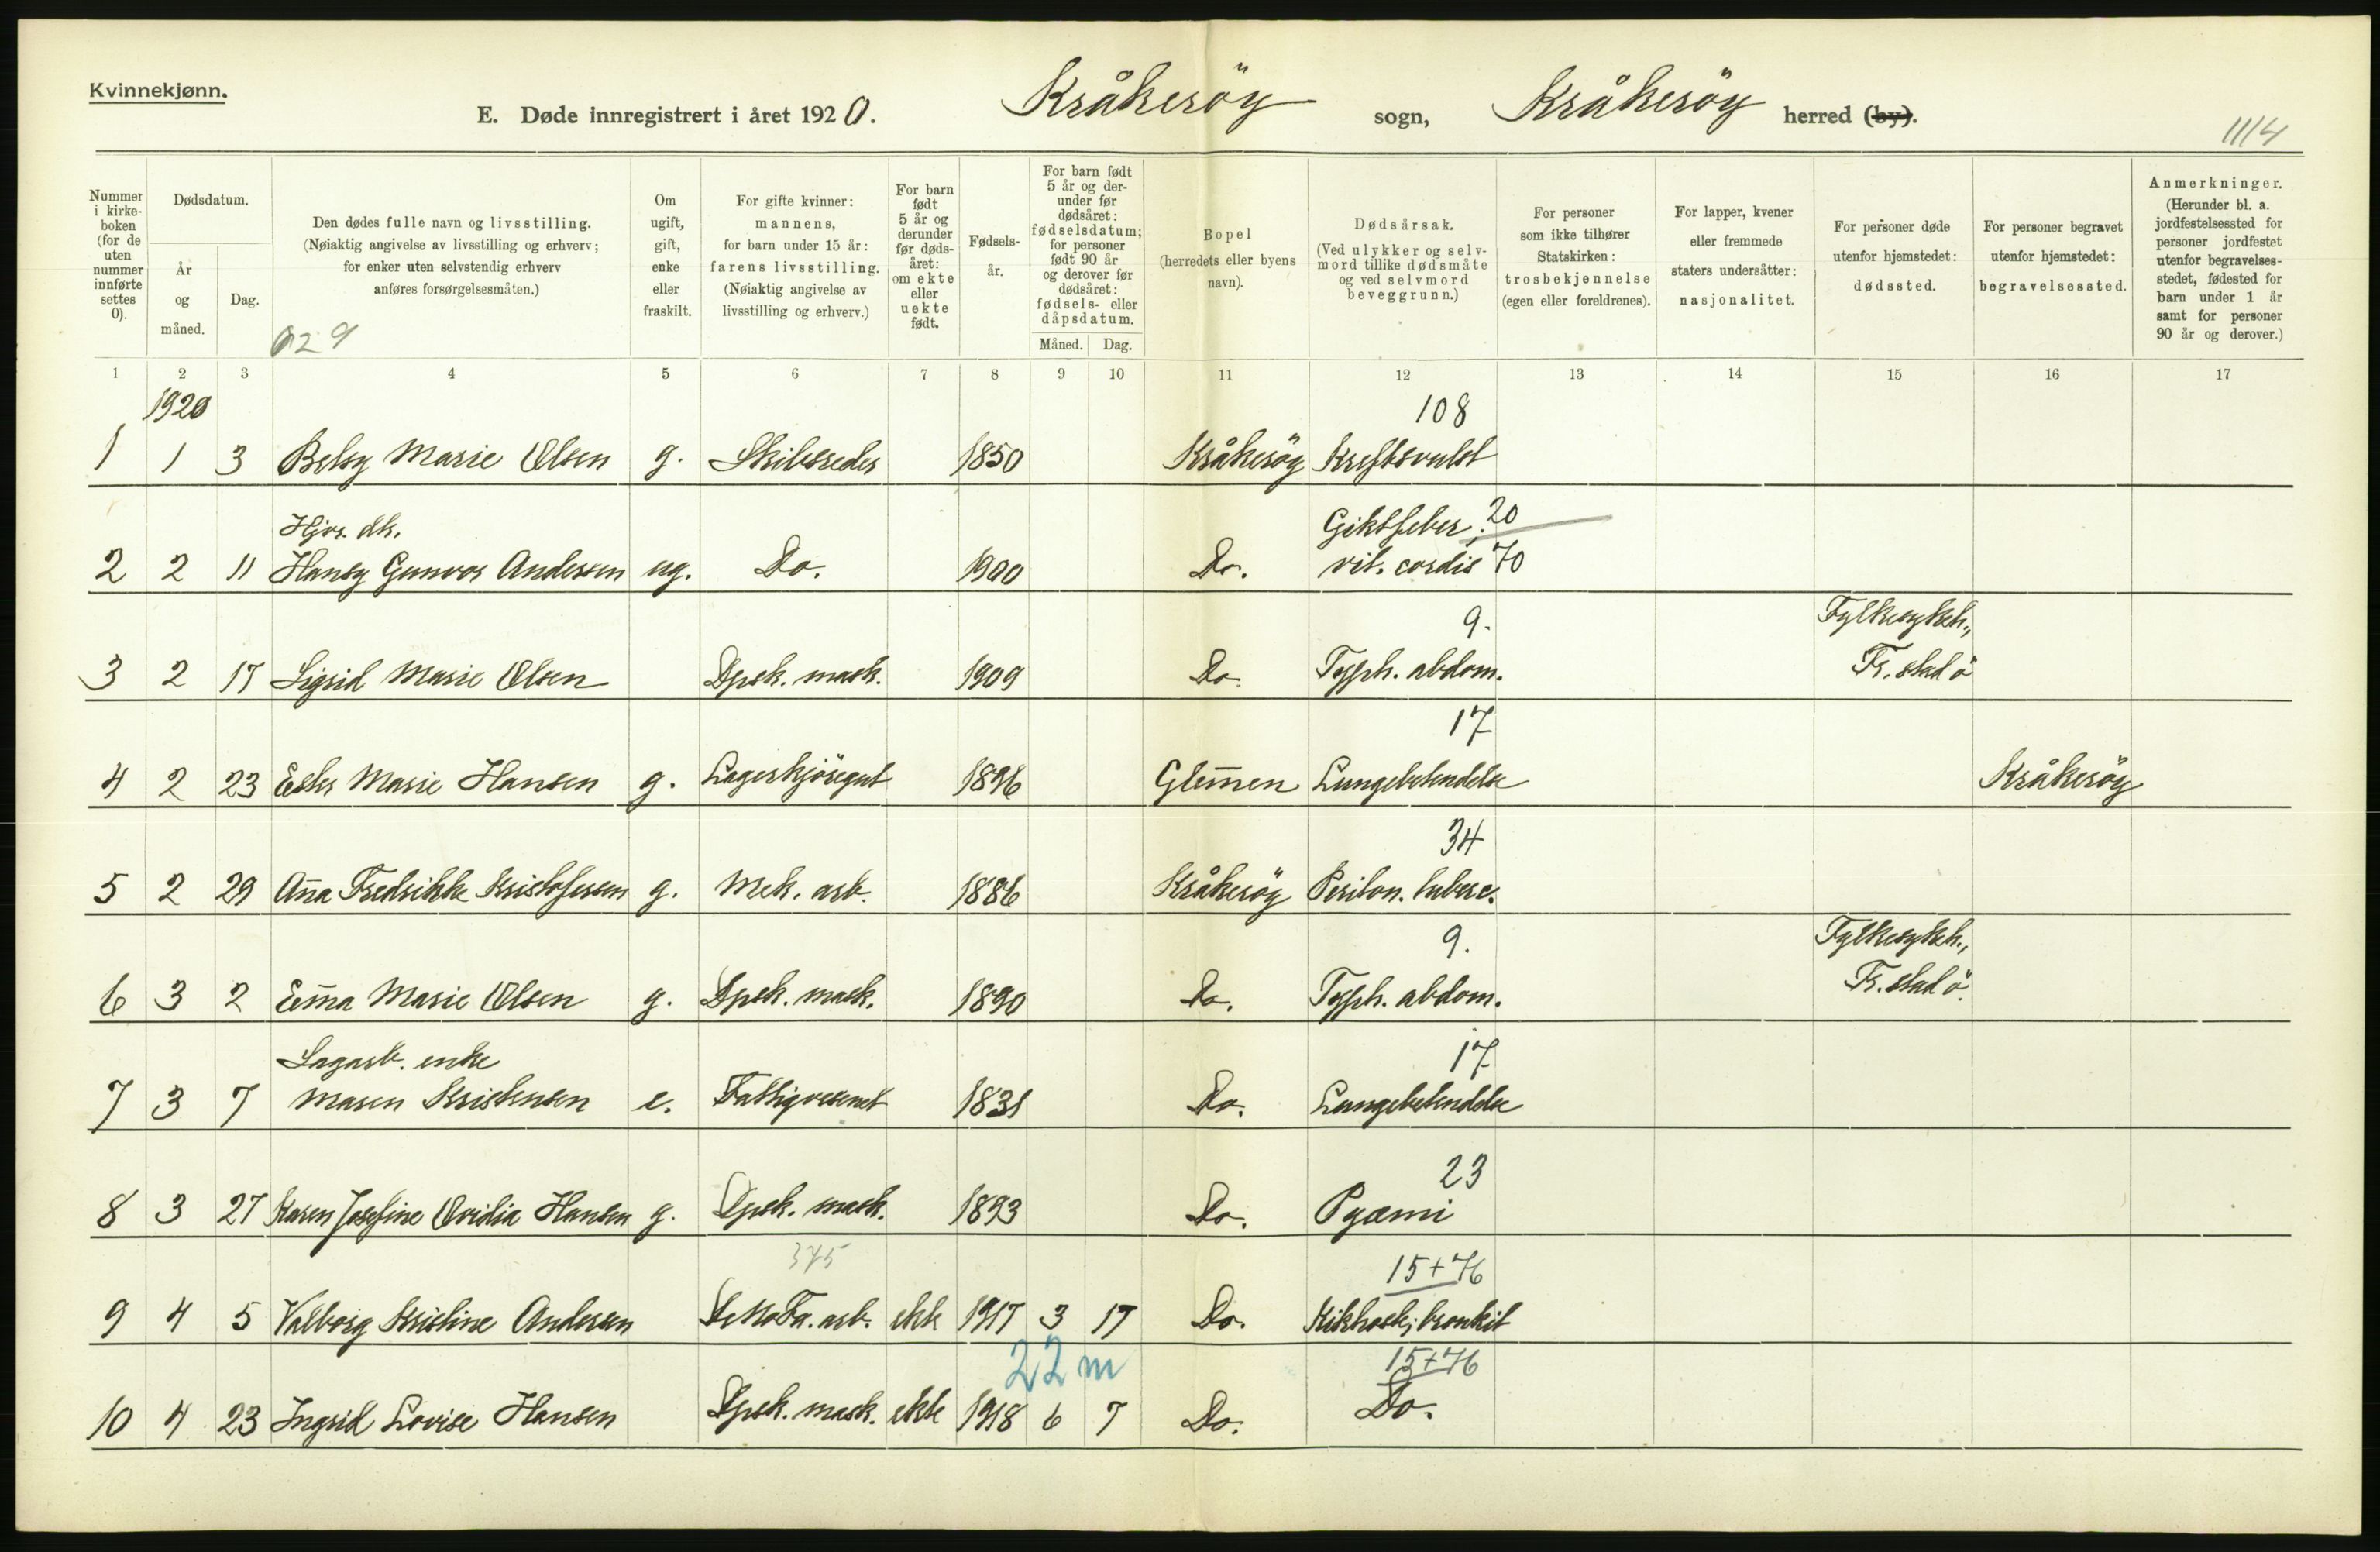 Kvinnekjønn.
E. Døde innregistrert i året 1920. Kråkeröy sogn, Kråkeröy herred (by).
1114
Nummer i kirke-boken (for de uten nummer innførte settes 0).
Dødsdatum.
År og måned.
Dag.
Den dødes fulle navn og livsstilling.
(Nøiaktig angivelse av livsstilling og erhverv;
for enker uten selvstendig erhverv
anføres forsørgelsesmåten.)
Om ugift, gift, enke eller fraskilt.
For gifte kvinner:
mannens,
for barn under 15 år:
farens livsstilling.
(Nøiaktig angivelse av
livsstilling og erhverv.)
For barn født 5 år og derunder før døds-året: om ekte eller uekte født.
Fødsels-år.
For barn født 5 år og der-under før dødsåret: fødselsdatum; for personer født 90 år og derover før dødsåret: fødsels- eller dåpsdatum.
Måned. Dag.
Bopel
(herredets eller byens
navn).
Dødsårsak.
(Ved ulykker og selv-
mord tillike dødsmåte
og ved selvmord
beveggrunn.)
For personer
som ikke tilhører
Statskirken:
trosbekjennelse
(egen eller foreldrenes).
For lapper, kvener
eller fremmede
staters undersåtter:
nasjonalitet.
For personer døde
utenfor hjemstedet:
dødssted.
For personer begravet
utenfor hjemstedet:
begravelsessted.
Anmerkninger.
(Herunder bl. a.
jordfestelsessted for
personer jordfestet
utenfor begravelses-
stedet, fødested for
barn under 1 år
samt for personer
90 år og derover.)
1 2 3 4 5 6 7 8 9 10 11 12 13 14 15 16 17
1920
108
1 1 3 Betsy Marie Olsen g. Skibsreder 1850 Kråkeröy Kreftsvulst
Hjvr. dk. Giktfeber; 20
2 2 11 Hansy Gunvor Andersen ug. Do. 1900 Do. vit. cordis 70
9. Fylkesykeh.,
3 2 17 Sigrid Marie Olsen Dpsk. mask. 1909 Do. Typh. abdom. Fr.stad ö
17
4 2 23 Ester Marie Hansen g. Lagerskjöregut 1896 Glem̄en Lungebetendelse Kråkeröy
34
5 2 29 An̄a Fredrikke Kristofersen g. Mek. arb. 1886 Kråkeröy Periton. tuberc.
9. Fylkesykeh.,
6 3 2 Em̄a Marie Olsen g. Dpsk. mask. 1890 Do. Typh. abdom. Fr.stad ö.
Sagarb. enke 17
7 3 7 Maren Kristensen e. Fattigvesenet 1831 Do. Lungebetendelse
23
8 3 27 Karen Josefine Ovidia Hansen g. Dpsk. mask. 1893 Do. Pyæmi
375 15+76
9 4 5 Valborg Kristine Andersen arb. ekte 1917 3 17 Do. Kikhoste; bronkit
22 m 15+76
10 4 23 Ingrid Lovise Hansen Dpsk. mask. ekte 1918 6 7 Do. Do.